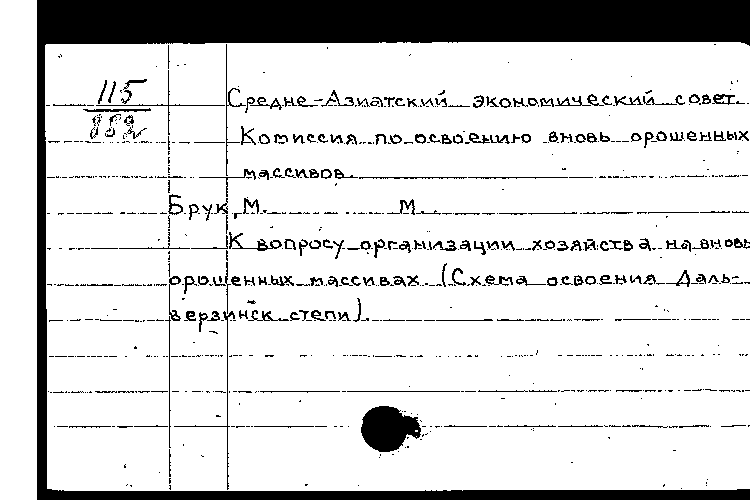 115
882
Средне-Азиатский экономический совет.
Комиссия по освоению вновь орошенных
массивов.
Брук, М. М.
К вопросу организации хозяйства на вновь
орошенных массивах. (Схема освоения Даль-
верзинск. степи).